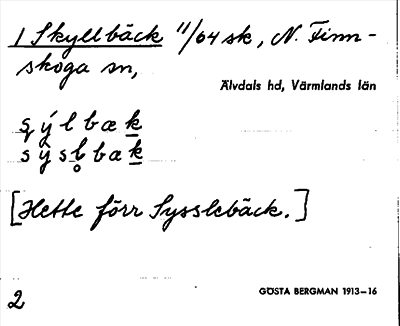 1 Skyllbäck 11/64 sk, N. Finn-
skoga sn,
Älvdals hd, Värmlands län
s̨ ý l b æ k
s ỳ s l̥ b æ k
[Hette förr Sysslebäck.]
2
GÖSTA BERGMAN 1913–16